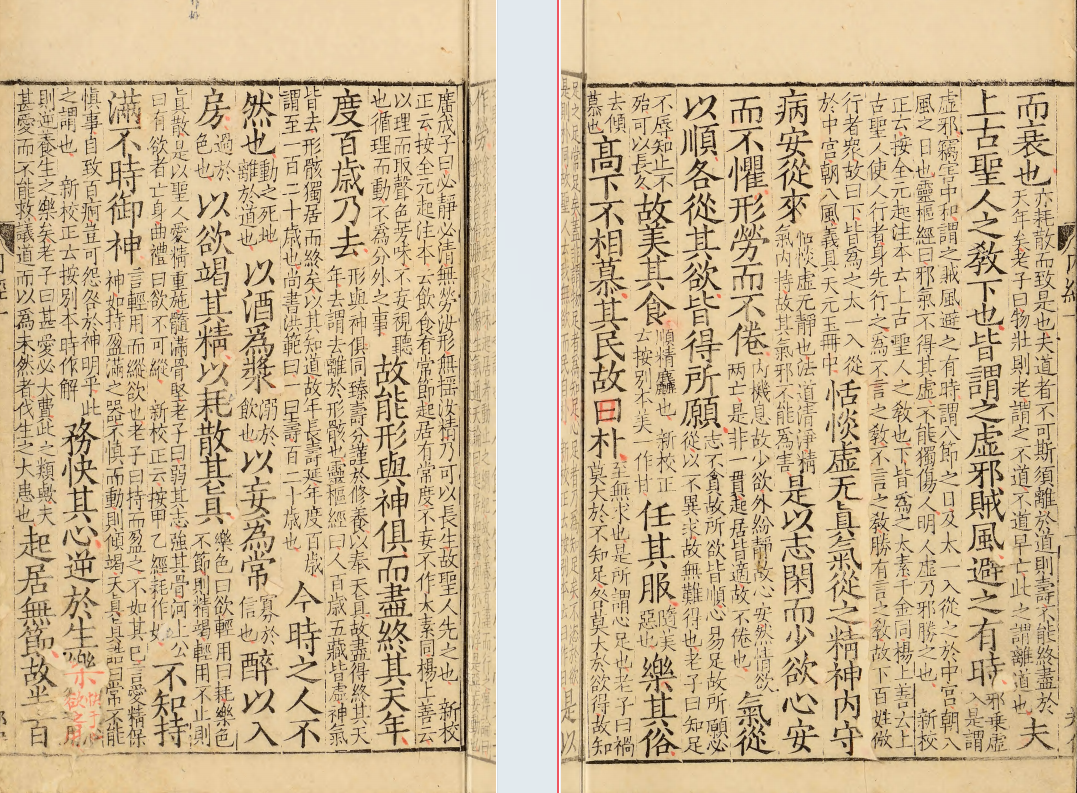 廣成子曰必靜必清無勞汝形無揺汝精乃可以長生故聖人先之也 新校正云按全元起注本云飲食有常節起居有常度不妄不作太素同楊上善云
以理而取聲色芳味不妄視聽也循理而動不為分外之事故能形與神俱而盡終其天年
度百歳乃去形與神俱同臻壽分謹於修養以奉天真故盡得終其天年去謂去離於形骸也靈樞經曰人百歲五藏皆虚神氣
皆去形骸獨居而終矣以其知道故年長壽延年度百歲謂至一百二十歲也尚書洪範曰一曰壽百二十歲也今時之人不
然也動之死地離於道也以酒爲漿溺於飲也以妄為常寡於信也醉以入
房過於色也以欲竭其精以耗散其真樂色曰欲輕用曰耗樂色不節則精竭輕用不止則
真散是以聖人愛精重施髓滿骨堅老子曰弱其志強其骨河上公曰有欲者亡身曲禮曰欲不可縱 新校正云按甲乙經耗作好不知持
滿不時御神言輕用而縱欲也老子曰持而盈之不如其已言愛精保神如持盈滿之器不慎而動則傾竭天真真誥曰常不能
慎事自致百痾豈可怨咎於神明乎此之謂也 新校正云按別本時作解務快其心逆於生樂快於心欲之用
則逆養生之樂矣老子曰甚愛必大費此之類歟夫甚愛而不能救議道而以爲未然者伐生之大患也起居無節故半百
而衰也亦耗散而致是也夫道者不可斯須離於道則壽不能終盡於天年矣老子曰物壯則老謂之不道不道早亡此之謂離道也夫
上古聖人之教下也皆謂之虛邪賊風避之有時邪乗虛入是謂
虛邪竊害中和謂之賊風避之有時謂八節之日及太一入從之於中宮朝八風之日也靈樞經曰邪氣不得其虛不能獨傷人明人虛乃邪勝之也 新校
正云按全元起注本云上古聖人之教也下皆爲之太素千金同楊上善云上古聖人使人行者身先行之爲不言之教不言之教勝有言之教故下百姓倣
行者衆故曰下皆為之太一入從於中宮朝八風義具天元玉冊中恬惔虛无真氣從之精神内守
病安從來恬惔虛无靜也法道清淨精氣内持故其氣邪不能為害是以志閑而少欲心安
而不懼形勞而不倦内機息故少欲外紛靜故心安然情欲兩亡是非一貫起居皆適故不倦也氣從
以順各從其欲皆得所願志不貪故所欲皆順心易足故所願必從以不異求故無難得也老子曰知足
不辱知止不殆可以長久故美其食順精麤也 新校正云按別本美一作甘任其服隨美惡也樂其俗
去傾慕也高下不相慕其民故曰朴至無求也是所謂心足也老子曰禍莫大於不知足咎莫大於欲得故知